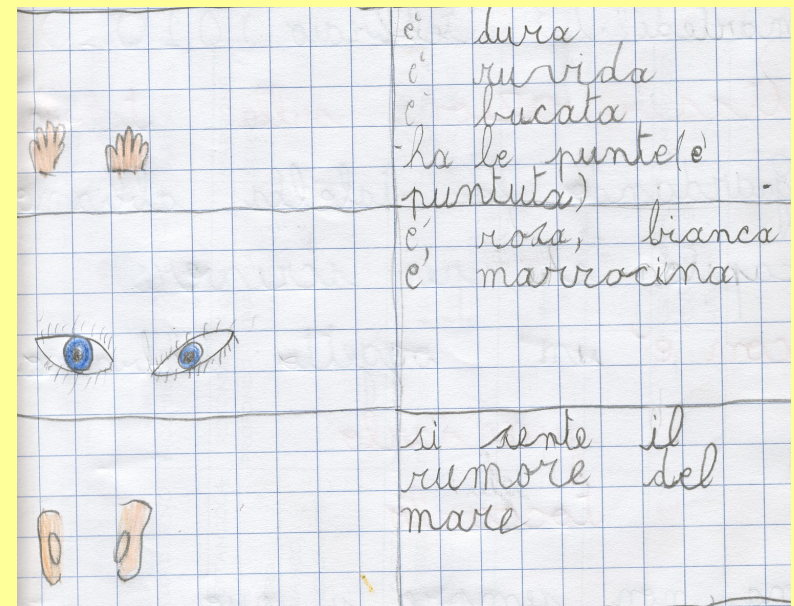 è dura
è ruvida
è bucata
-ha le punte(è
puntuta)
è, rosa, bianca
è marrocina
si sente il
rumore del
mare